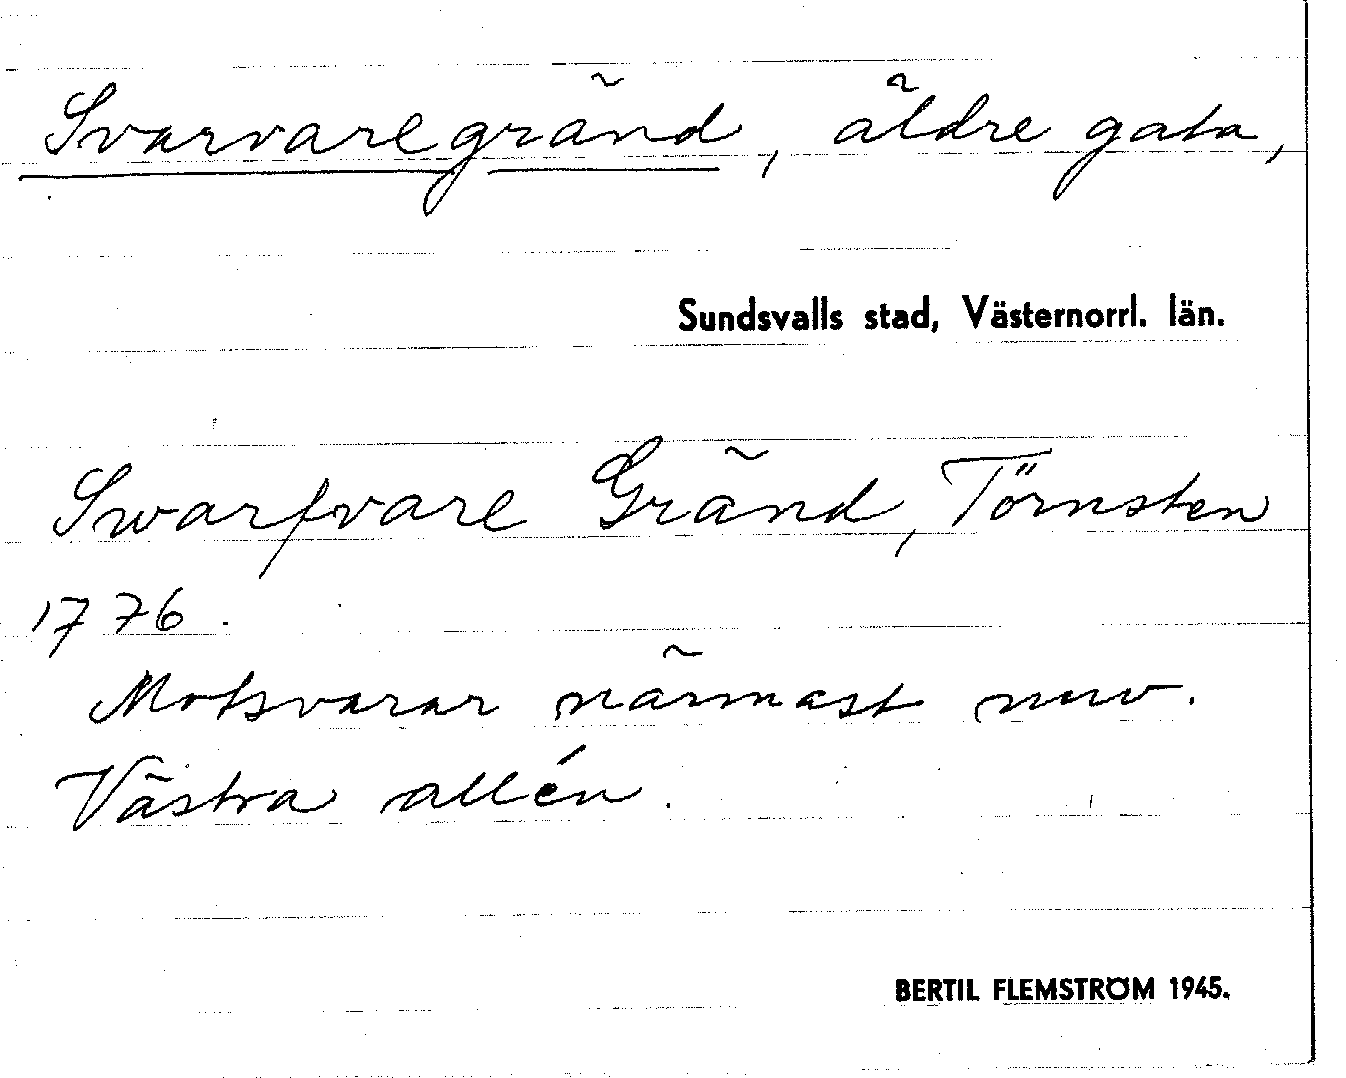 Svarvaregränd, äldre gata,
Sundsvalls stad, Västernorrl. län.
Swarfvare Gränd, Törnsten
1776.
Motsvarar närmast nuv.
Västra allén.
BERTIL FLEMSTRÖM 1945.